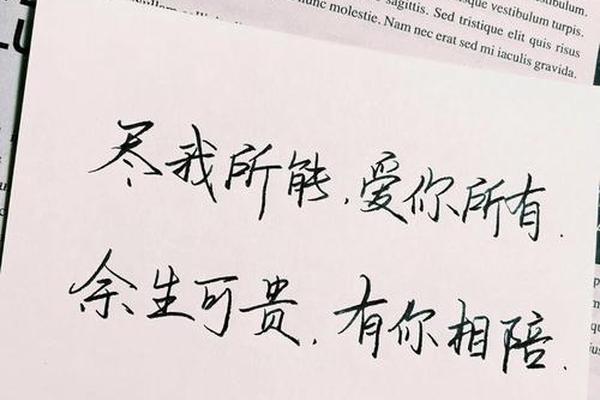 vestibulum.
quesque vestibulum turpis.
sagittis. Sed tristique elit quis risus
nunc molestie. Nam nec erat sed mi iaculis gravida.
尽我所能,爱你所有.
余生可贵,有你相陪.